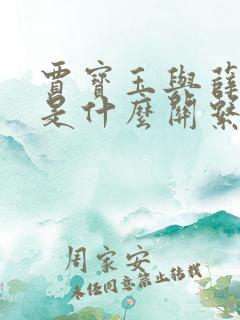 賈寶玉與薛
是什麼關係
周家安
未經同意禁止轉載